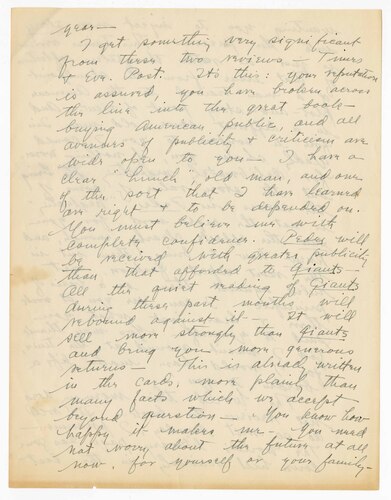 year—
I get something very significant
from these two reviews — Times
& Eve. Post. It's this: your reputation
is assured, you have broken across
the line into the great book-
buying American public, and all
avenues of publicity & criticism are
wide open to you — I have a
clear "hunch", old man, and one
of the sort that I have learned
are right & to be depended on.
You must believe me with
complete confidence. Peder will
be received with greater publicity
than that afforded to Giants —
All the quiet reading of Giants
during these past months will
rebound against it — It will
sell more strongly than Giants
and bring you more generous
returns — This is already written
in the cards, more plainly than
many facts which we accept
beyond question — You know how
happy it makes me — You need
not worry about the future at all
now, for yourself or your family —